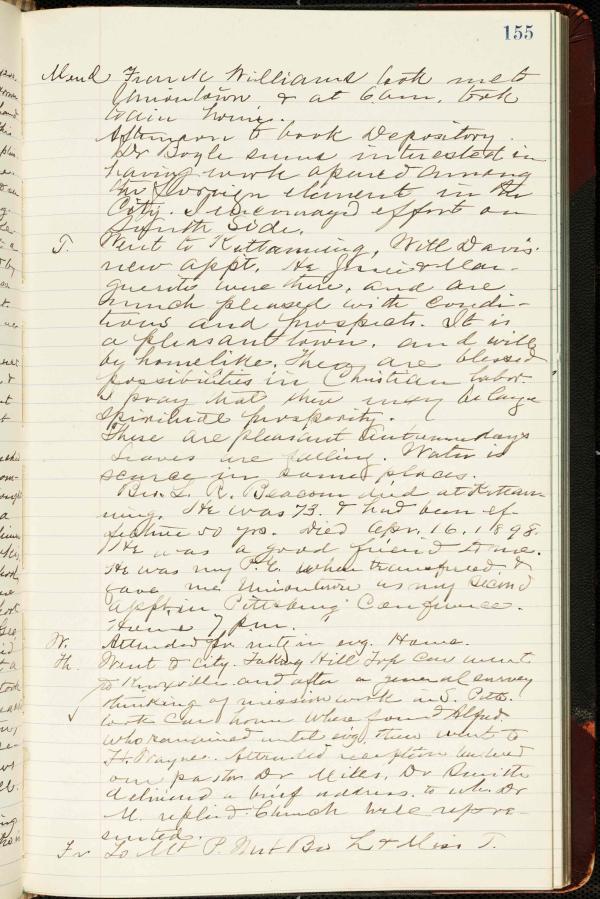 155
Mond Frank Williams took me to
Uniontown & at 6 am. took
train home.
Afternoon to book Depository.
Dr Boyle seems interested in
having work opened among
the Foreign element in the
City. I encouraged effort on
South Side.
T. Went to Kittanning, Will Davis'
new appt. He Jennie & Mar-
guerite were there, and are
much pleased with condi-
tions and prospects. It is
a pleasant town, and will
be homelike. They are blessed
possibilities in Christian labor.
I pray that there may be large
spiritual prosperity.
These are pleasant Autumn days
Leaves are falling. Water is
scarce in some places.
Bro. L. R. Beacom died at Kittan-
ning. He was 73. & had been ef-
fective 50 yrs. Died Apr. 16, 1898.
He was a good friend to me.
He was my P.E. when transferred, &
gave me Uniontown as my second
appt in Pittsburg Conference.
Home 7 p.m.
W. Attended in evg. Home.
Th. Went to City. Taking Hill Top Car went
to Knoxville and after a general survey
thinking of mission work in S. Pitts.
took Car home where found Alfred.
who remained until evg, then went to
Ft. Wayne. Attended reception
our pastor Dr Miles, Dr Smith
delivered a brief address. to wh. Dr
M. replied. Church well repre-
sented.
Fr To Mt P. Met Bro L & Miss T.